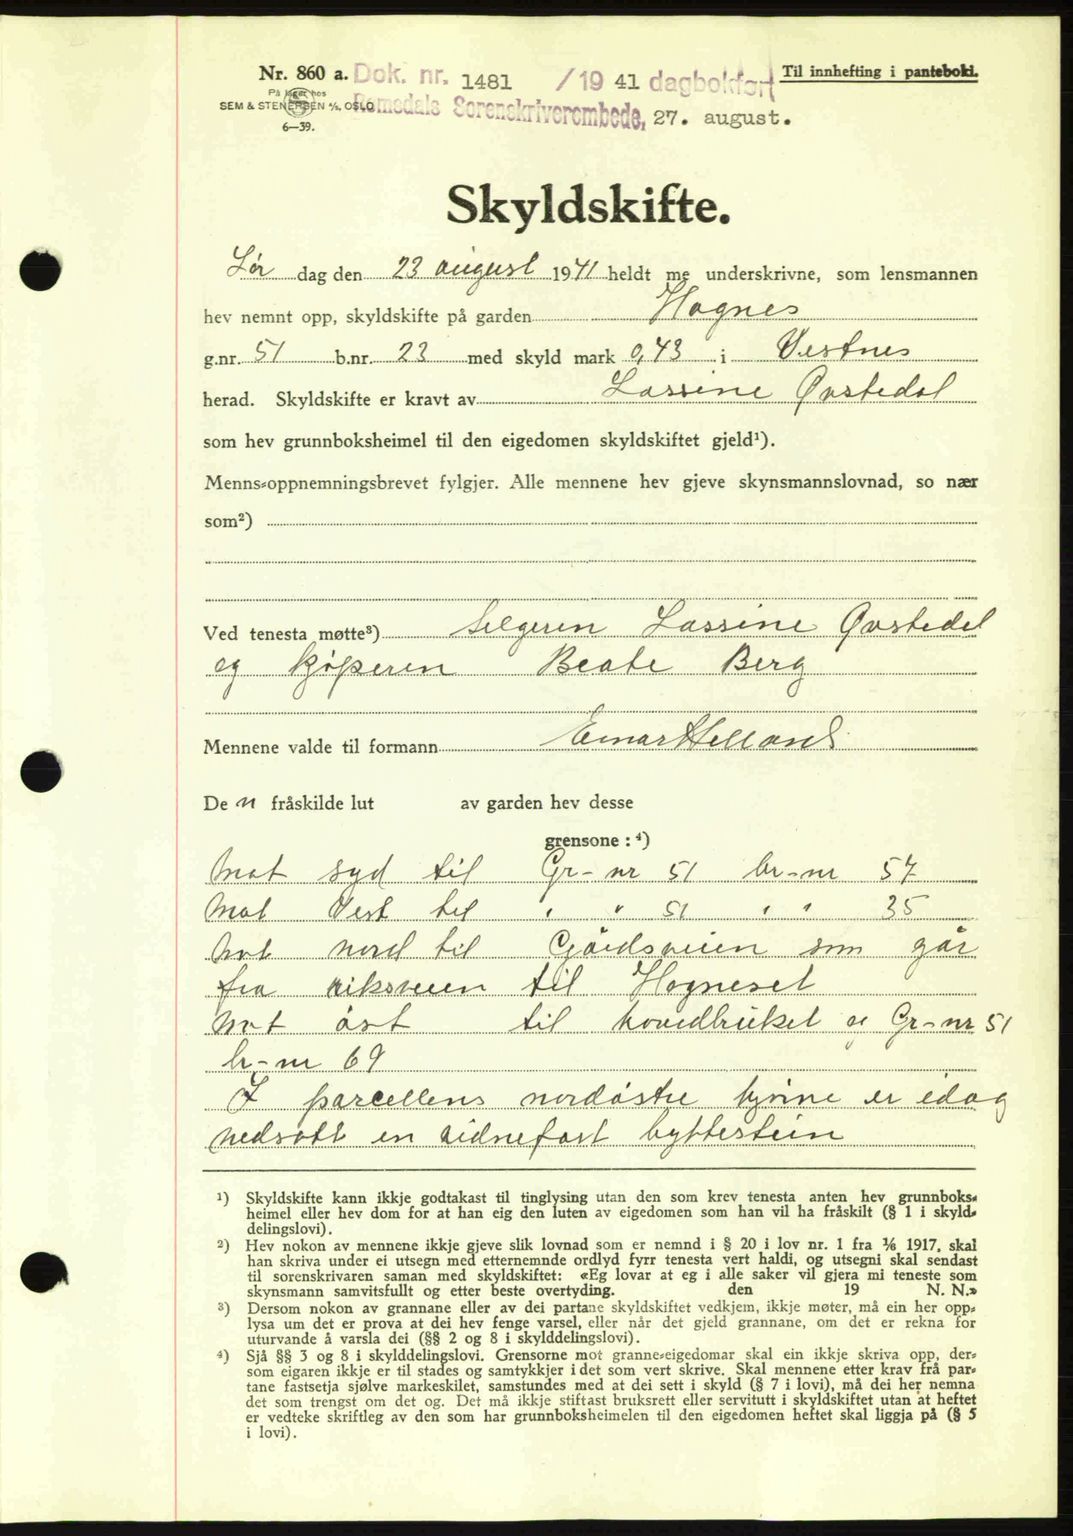 Nr. 860 a. Dok. nr. 1481 / 19 41 dagbokført Til innhefting i pantebok.
På lager hos
SEM & STENERSEN A/S, OSLO Romsdals Sorenskriverembede, 27. august.
6—39.
Skyldskifte.
Lør dag den 23 august 1941 heldt me underskrivne, som lensmannen
hev nemnt opp, skyldskifte på garden Hagnes
g.nr. 51 b.nr. 23 med skyld mark 0,43 i Vestnes
herad. Skyldskifte er kravt av Lassine Øvstedal
som hev grunnboksheimel til den eigedomen skyldskiftet gjeld¹).
Menns-oppnemningsbrevet fylgjer. Alle mennene hev gjeve skynsmannslovnad, so nær
som²)
Ved tenesta møtte³) Selgeren Lassine Øvstedal
og kjøperen Beate Berg
Mennene valde til formann Einar Helland
De n fråskilde lut av garden hev desse
grensone : ⁴)
Mot syd til Gr-nr 51 br-nr 57
Mot Vest til " " 51 " " 35
Mot nord til Gårdsveien som går
fra riksveien til Hogneset
Mot øst til hovedbruket og Gr-nr 51
br-nr 69
I parcellens nordøstre hjørne er idag
nedsatt en bytteStein
¹) Skyldskifte kann ikkje godtakast til tinglysing utan den som krev tenesta anten hev grunnboks-
heimel eller hev dom for at han eig den luten av eigedomen som han vil ha fråskilt (§ 1 i skyld-
delingslovi).
²) Hev nokon av mennene ikkje gjeve slik lovnad som er nemnd i § 20 i lov nr. 1 fra 1/6 1917, skal
han skriva under ei utsegn med etternemnde ordlyd fyrr tenesta vert haldi, og utsegni skal sendast
til sorenskrivaren saman med skyldskiftet: «Eg lovar at eg i alle saker vil gjera mi teneste som
skynsmann samvitsfullt og etter beste overtyding. den 19 N. N.»
³) Dersom nokon av grannane eller av dei partane skyldskiftet vedkjem, ikkje møter, må ein her opp-
lysa um det er prova at dei hev fenge varsel, eller når det gjeld grannane, om det er rekna for
uturvande å varsla dei (§§ 2 og 8 i skylddelingslovi).
⁴) Sjå §§ 3 og 8 i skylddelingslovi. Grensorne mot granne-eigedomar skal ein ikkje skriva opp, der-
som eigaren ikkje er til stades og samtykkjer i det som vert skrive. Skal mennene etter krav frå par-
tane fastsetja sjølve markeskilet, samstundes med at dei sett i skyld (§ 7 i lovi), må dei her nemna
det som trengst om det og. Det må ikkje stiftast bruksrett eller servitutt i skyldskiftet utan at heftet
er vedteke skriftleg av den som har grunnboksheimelen til den eigedomen heftet skal liggja på (§ 5
i lovi).